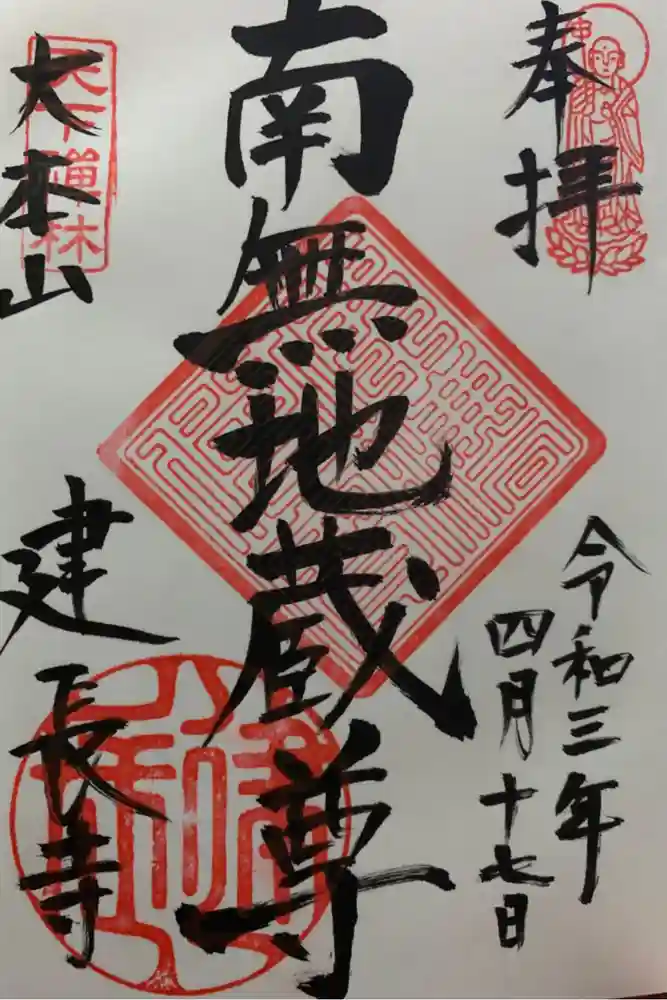 奉拝
令和三年
四月十七日
南無地蔵尊
天下禅林
大本山
建長寺